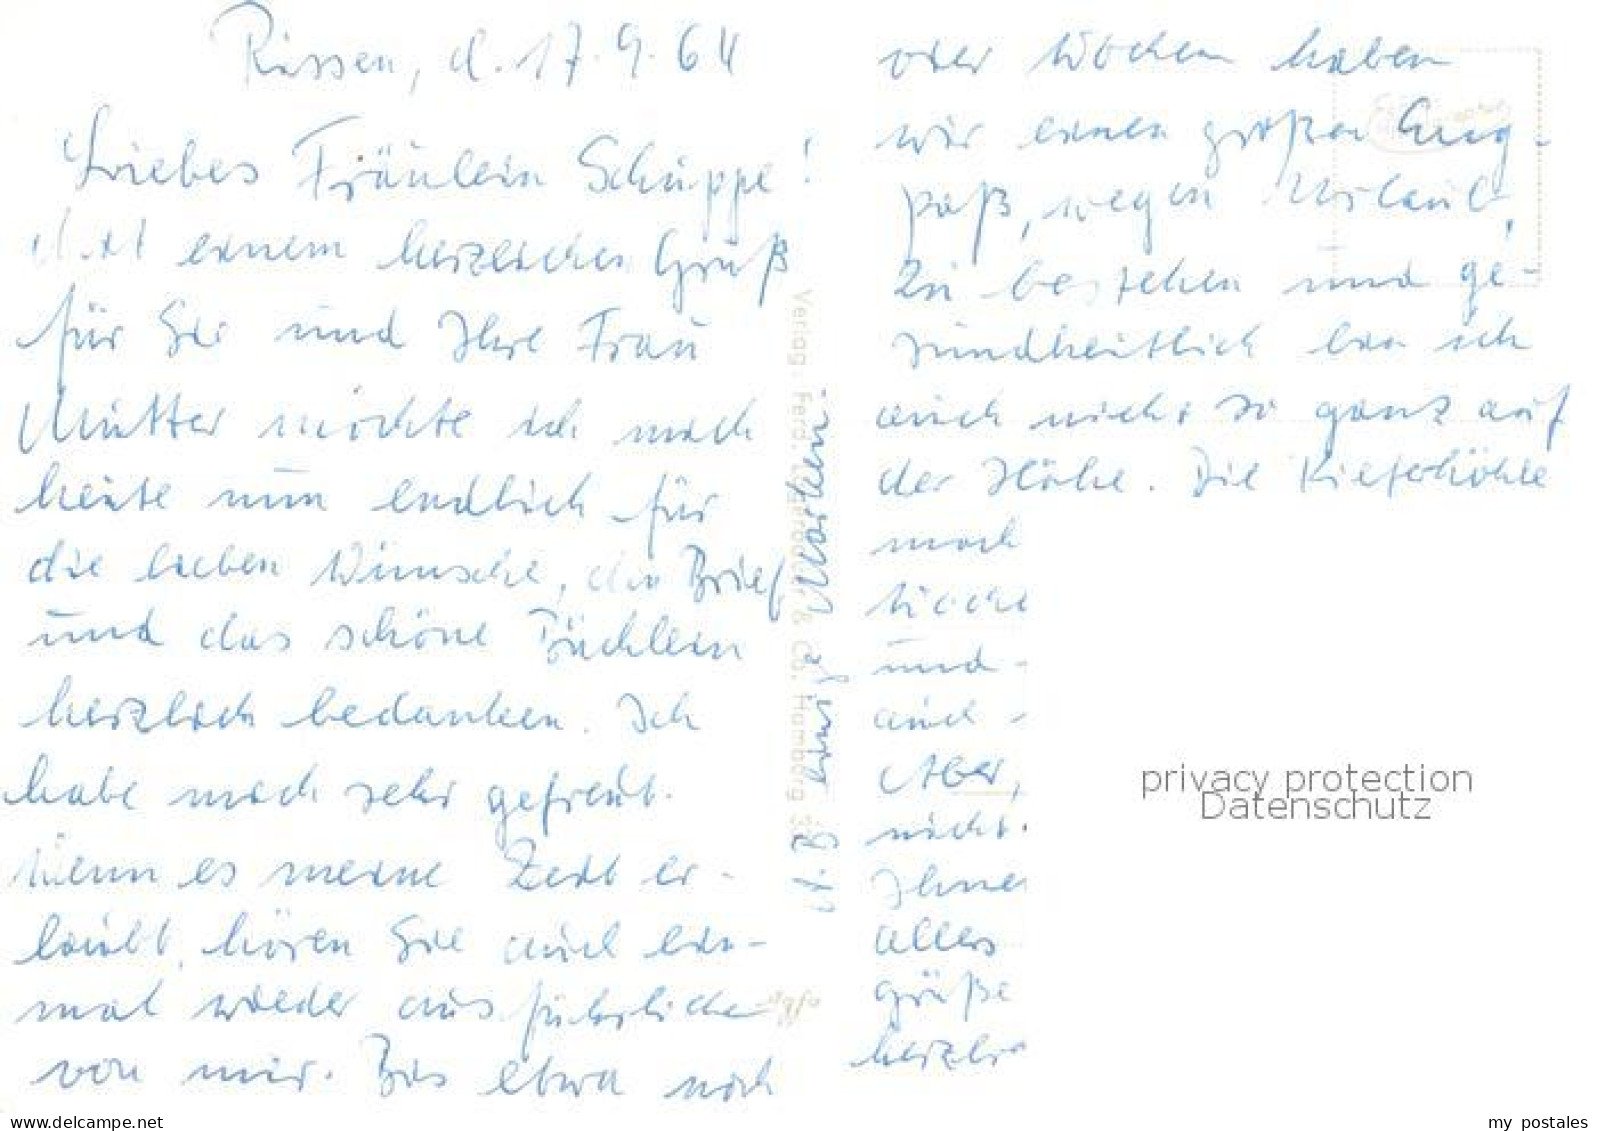 Rissen, d. 17.9.64
Liebes Fräulein Schuppe!
Mit einem herzlichen Gruß
für Sie und Ihre Frau
Mutter möchte ich mich
heute nun endlich für
die lieben Wünsche, den Brief
und das schöne Büchlein
herzlich bedanken. Ich
habe mich sehr gefreut.
Wenn es meine Zeit er-
laubt, hören Sie auch ein-
mal wieder ausführlicher
von mir. Bis etwa noch
vier Wochen haben
wir einen großen Eng-
paß, wegen Urlaub,
zu bestehen und ge-
sundheitlich bin ich
auch nicht so ganz auf
der Höhe. Die Kieferhöhle
mach
und -
auch -
Aber,
nicht
Ihne
alles
Grüße
herzli
Verlag: Ferd. & Co. Hamburg
privacy protection
Datenschutz
oldthing.de
my postales